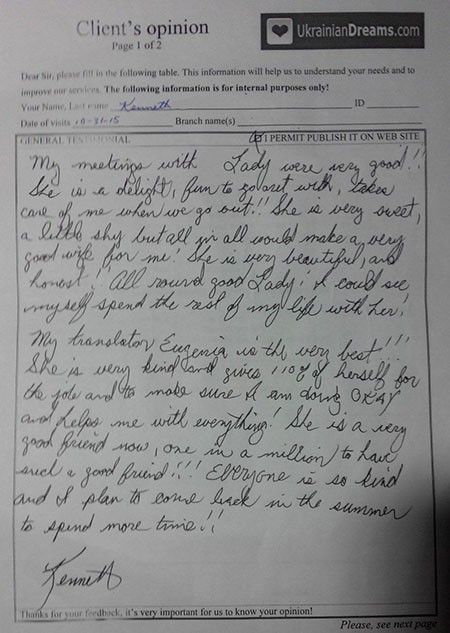 Client's opinion
Page 1 of 2
UkrainianDreams.com
Dear Sir, please fill in the following table. This information will help us to understand your needs and to
improve our services. The following information is for internal purposes only!
Your Name, Last name Kenneth ID
Date of visits 10-31-15 Branch name(s)
GENERAL TESTIMONIAL I PERMIT PUBLISH IT ON WEB SITE
My meetings with Lady were very good!!
She is a delight, fun to go out with, takes
care of me when we go out!! She is very sweet,
a little shy but all in all would make a very
good wife for me! She is very beautiful, and
honost! All round good Lady! I could see
myself spend the rest of my life with her!
My translator Eugenia is the very best!!!
She is very kind and gives 110% of herself for
the job and to make sure I am doing OKAY
and helps me with everything! She is a very
good friend now, one in a million to have
such a good friend!!! Everyone is so kind
and I plan to come back in the summer
to spend more time!!
Kenneth
Thanks for your feedback, it's very important for us to know your opinion!
Please, see next page